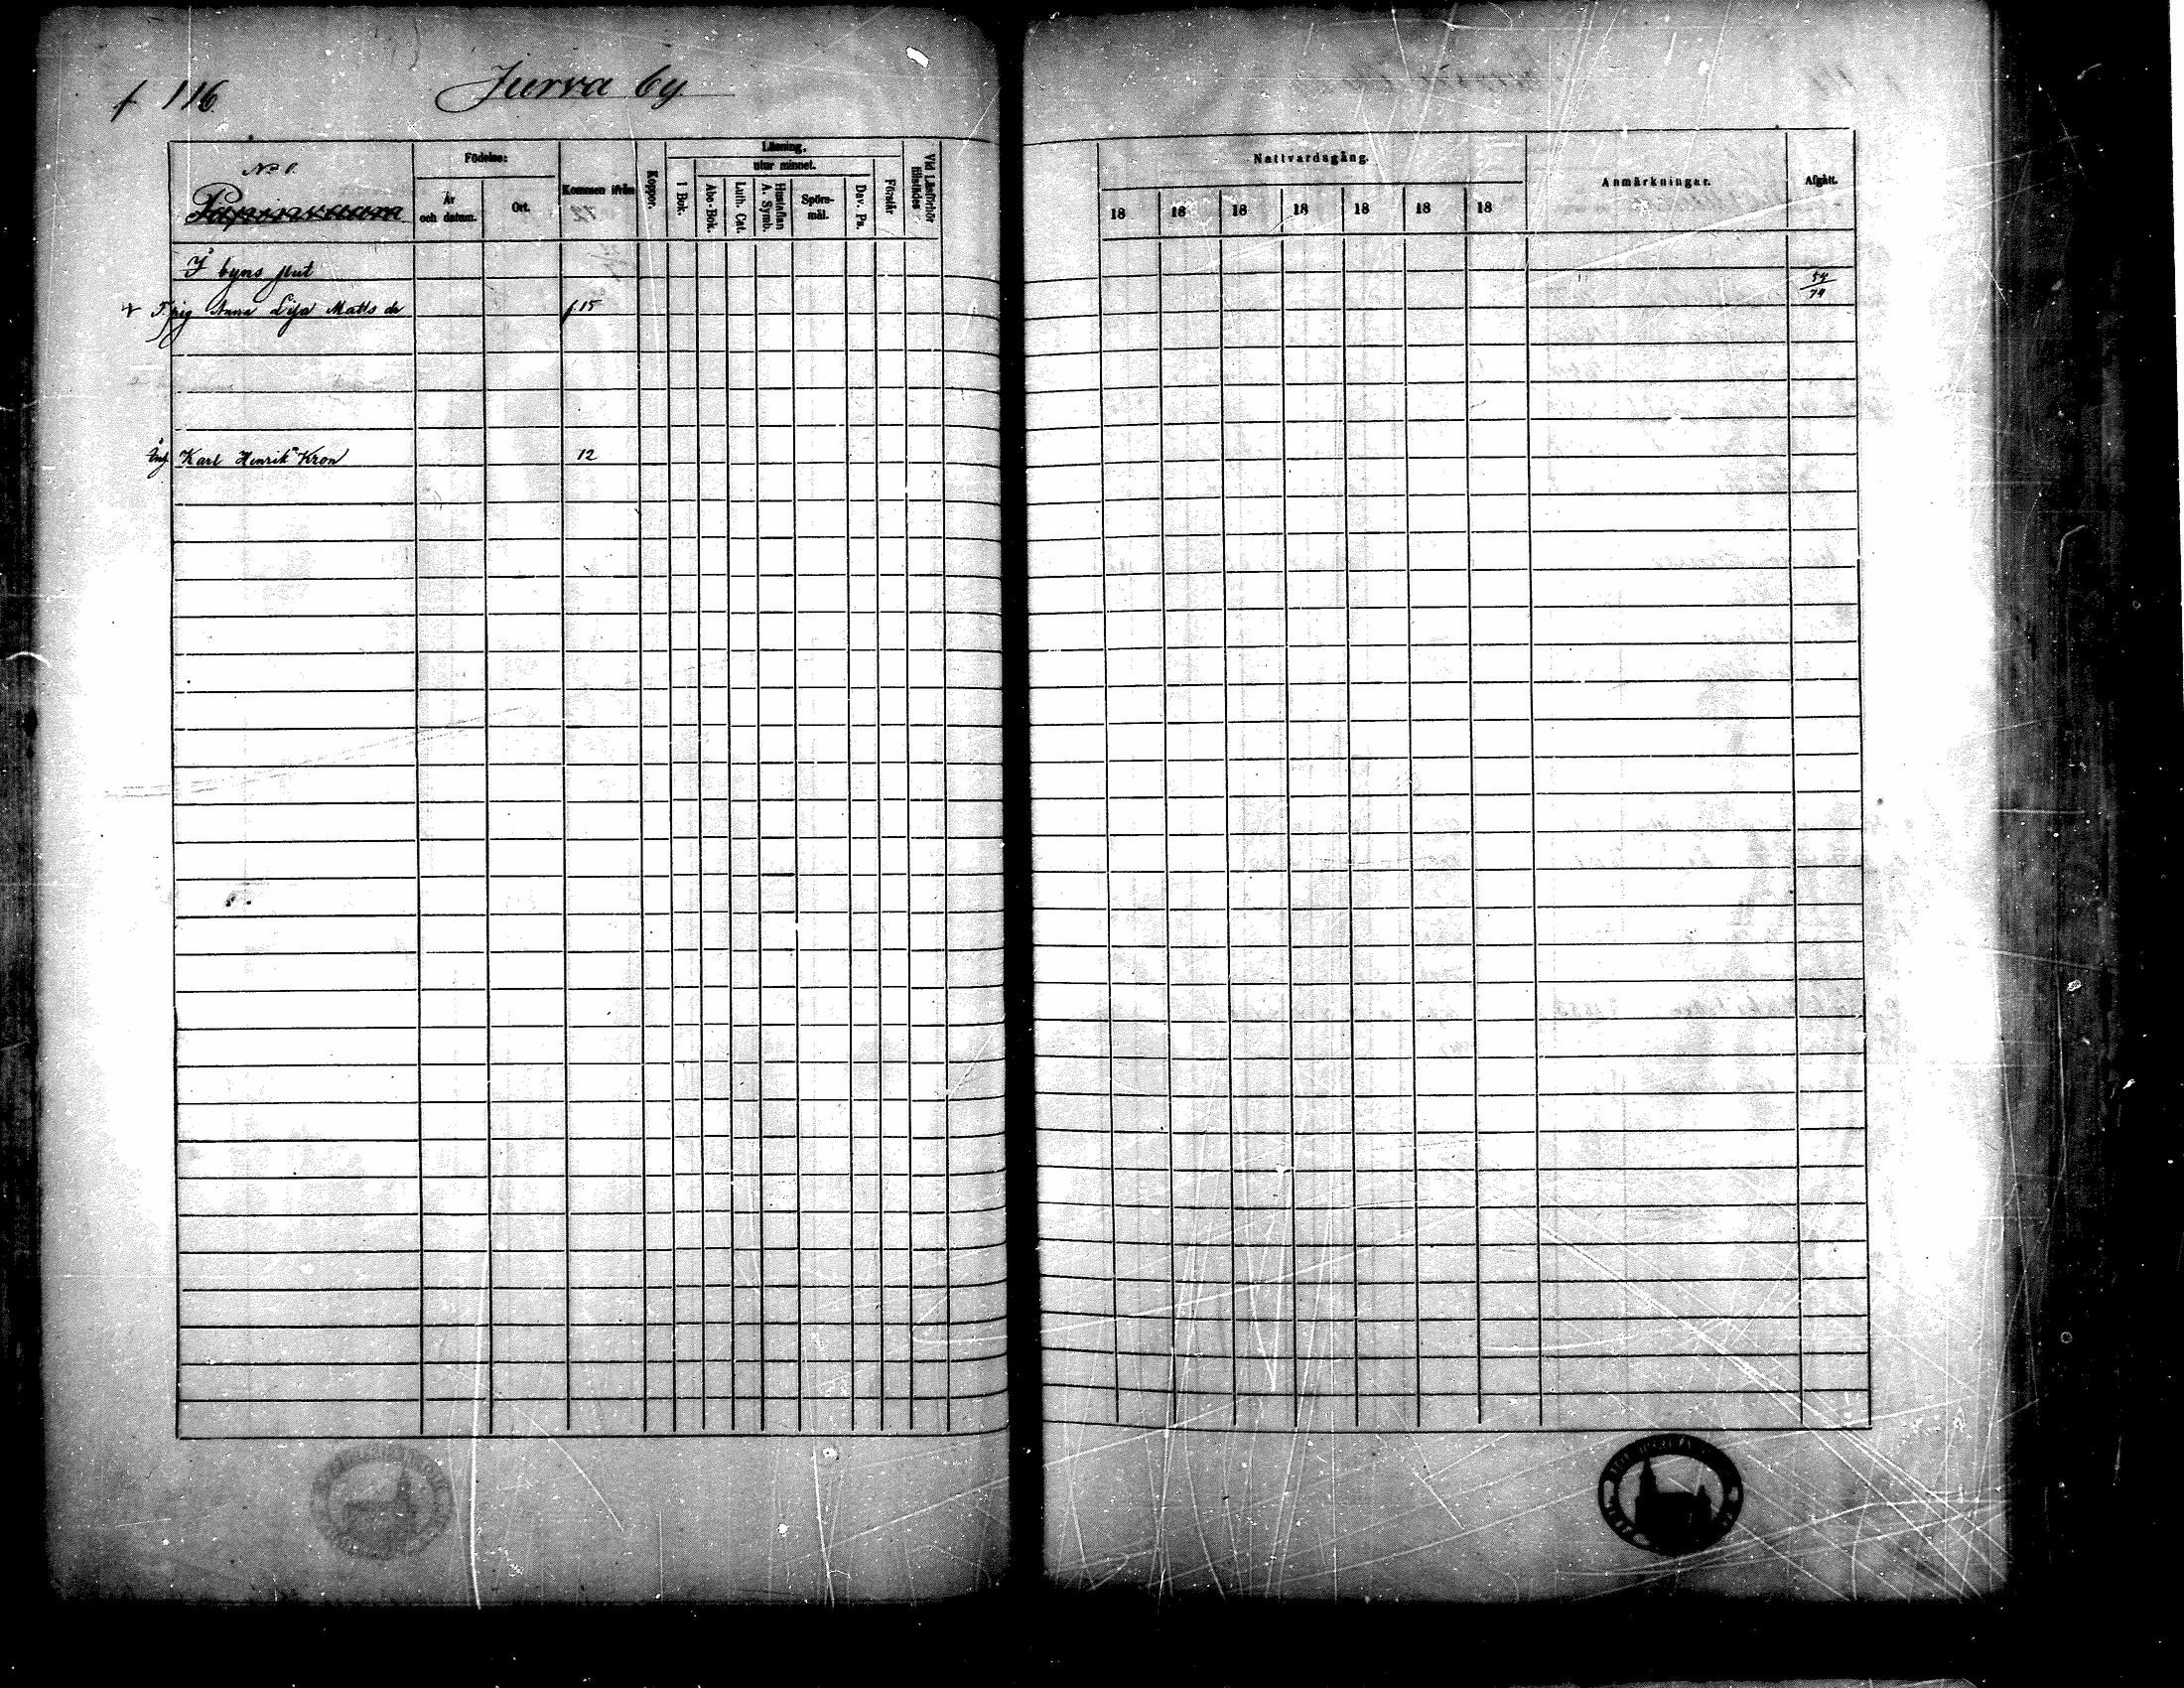 f 116.
Jurva by
No 1.
Födelse:
År och datum.
Ort.
Kommen ifrån
Koppor.
Läsning,
utur minnet.
I Bok.
Abc-Bok.
Luth. Cat.
Hustaflan A. Symb.
Spörs-mål.
Dav. Ps.
Förstår
Vid Läsförhör tillstädes
Nattvardsgång.
18 18 18 18 18 18 18
Anmärkningar.
Afgått.
I byns slut
F. pig Anna Lisa Matts dr f. 15
Karl Henrik Kron 12